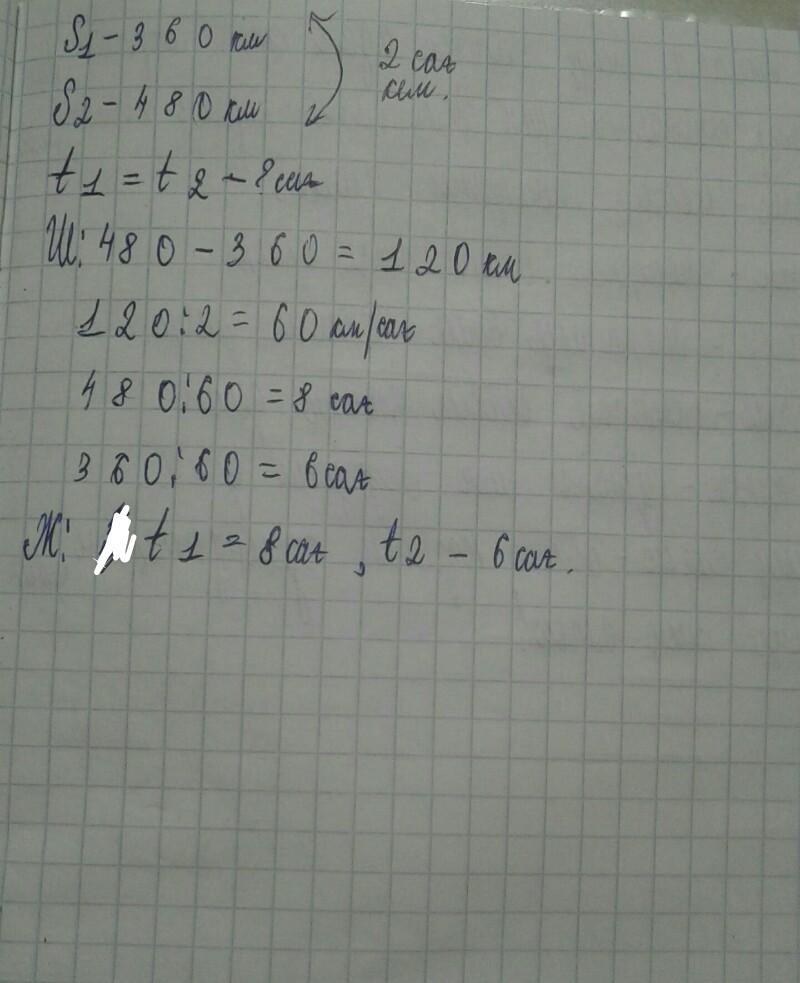 S1 - 360 км
2 сағ
кем.
S2 - 480 км
t1 = t2 - ? сағ
Ш: 480 - 360 = 120 км
120:2 = 60 км/сағ
480:60 = 8 сағ
360:60 = 6 сағ
Ж: t1 = 8 сағ, t2 - 6 сағ.